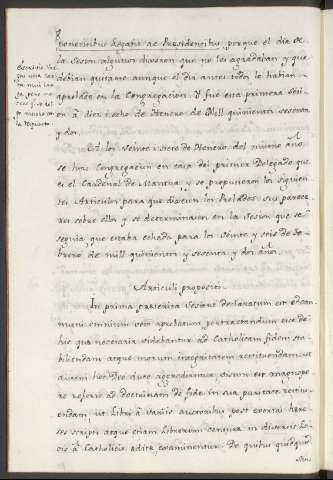 ponentibus Legatis ac Presidentibus, porque el dia de
la Sesion algunos dixeron que no les agradaban y que
debian quitarse aunque el dia antes todos lo habian
aprobado en la Congregacion. Y fue esta primera Sesi-
on à diez i ocho de Henero de Mill quinientos sesenta
y dos.
A los veinte i siete de Henero del mismo año
se hizo Congregacion en casa del primer Delegado que
es el Cardenal de Mantua y se propusieron los siguien-
tes Articulos para que diesen los Prelados sus parece-
res sobre ellos y se determinasen en la Sesion que se
seguia, que estaba echada para los veinte y seis de Fe-
brero de mill quinientos y sesenta y dos años.
Articuli propositi.
In prima preterita Sesione declaratum est
muni omnium voto aprobatum pertractandum esse de
hic que necesaria videbantur ad Catholicam fidem sta-
biliendam atque morum integritatem restituendam: ut
autem hoc Deo duce aggrediamur, visum est magnope-
re referre ad doctrinam de fide in sua puritate retin-
endam, ut Libri à variis auctoribus post exortas here-
ses scripti atque etiam Librorum censura in diversis Lo-
cis à Catholicis edita examinentur. De quibus quidquid